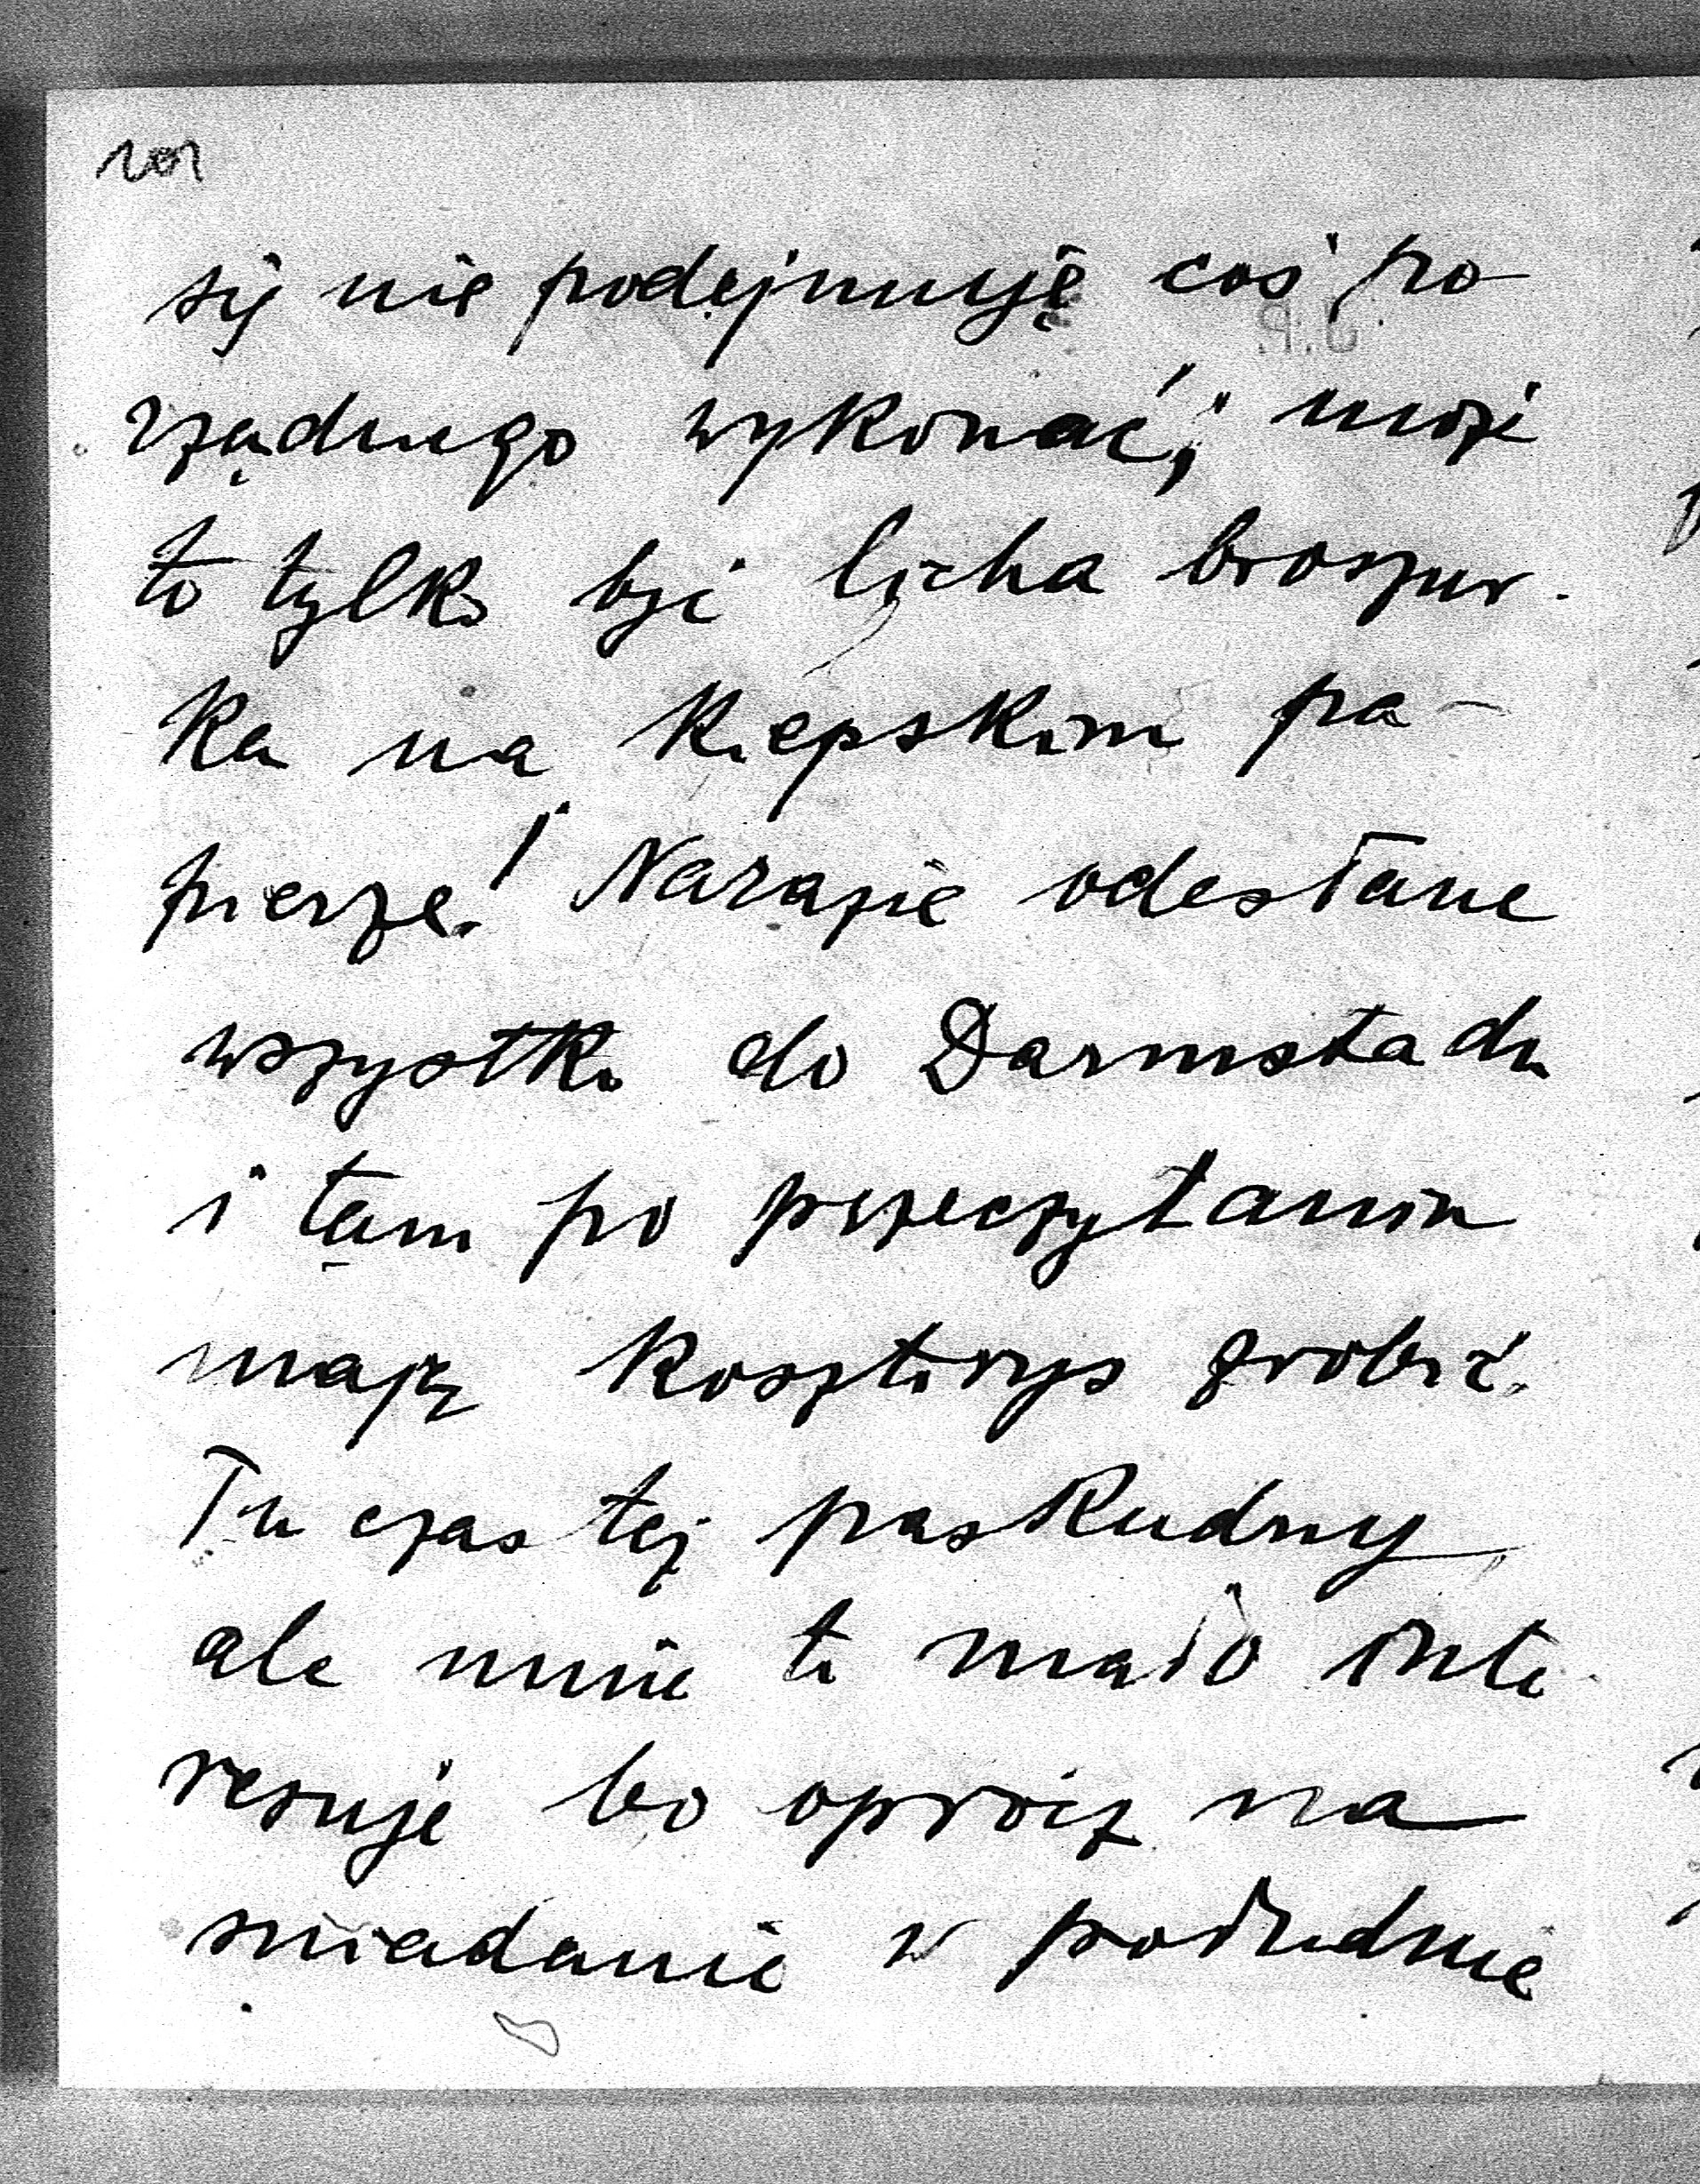 się nie podejmuję coś po
rządnego wykonać; może
to tylko być licha broszur-
ka na kiepskim pa-
pierze! Narazie odesłane
wszystko do Darmstadu
i tam po przeczytaniu
mają kosztorys zrobić.
Tu czas też paskudny
ale mnie to mało inte
resuje bo oprócz na
sniadanie w południe